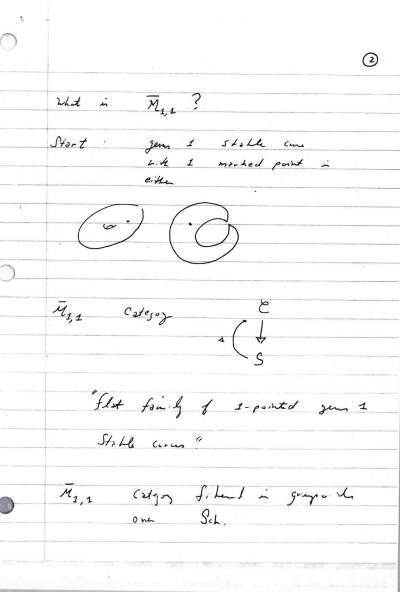 2
What is M̄₁,₁ ?
Start : genus 1 stable curve
with 1 marked point is
either
M̄₁,₁ category
C
s
S
"flat family of 1-pointed genus 1
stable curves"
M̄₁,₁ category fibered in groupoids
over Sch.